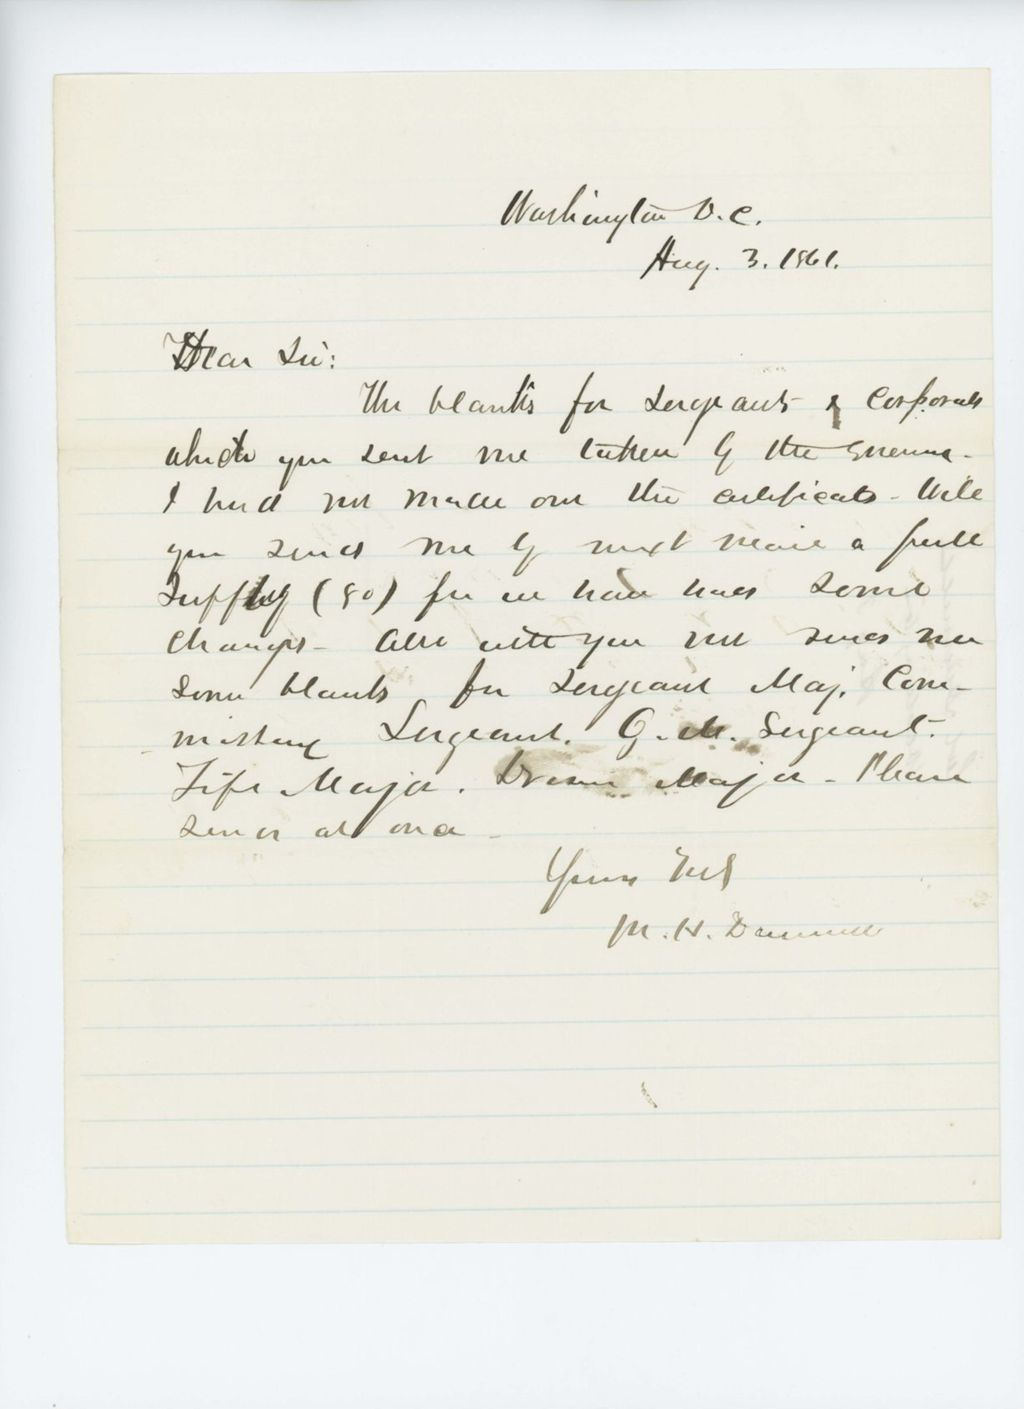 Washington D.C.
Aug. 3. 1861.
Dear Sir:
The blanks for Sergeants & Corporals
which you sent me taken by the enemy.
I had not made out the certificates - Will
you send me by next mail a full
supply (80) for we have had some
changes - Also will you not send me
some blanks for Sergeant Maj. Com-
missary Sergeant. Q. M. Sergeant.
Fife Major. Drum Major - Please
send at once -
Yours
M. H. Dunnell